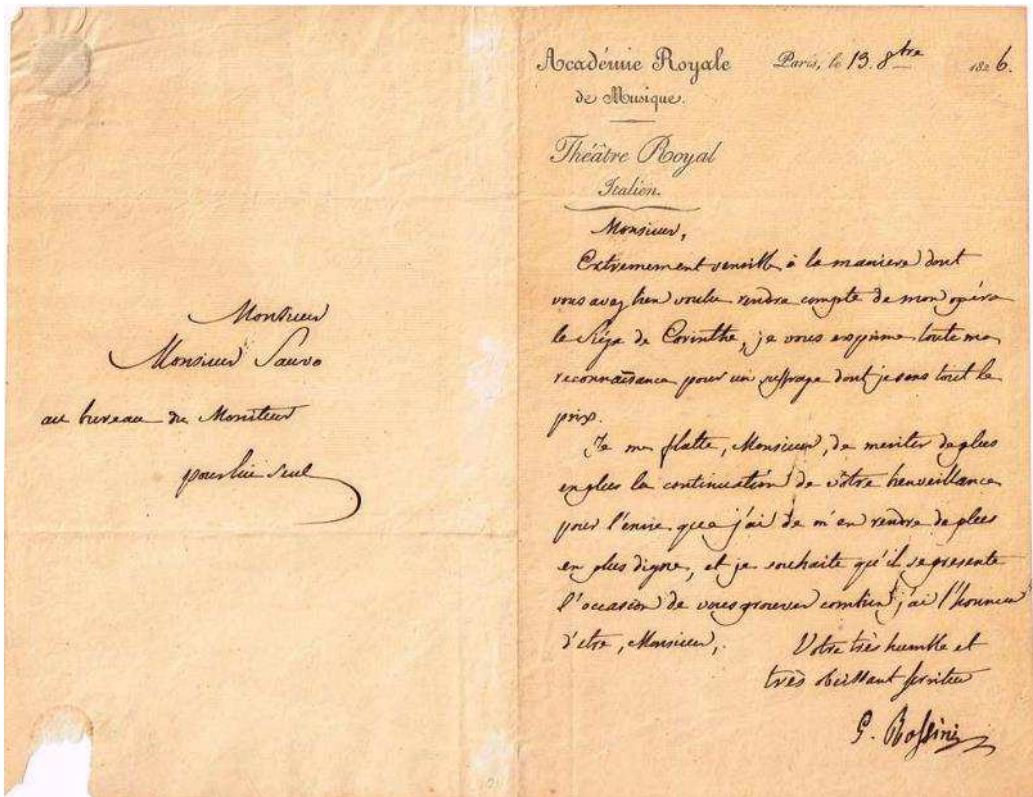 Monsieur
Monsieur Sauvo
au bureau du Moniteur
pour lui seul
Académie Royale
de Musique.
Paris, le 13. 8bre 1826.
Théâtre Royal
Italien.
Monsieur,
Extremement sensible à la maniere dont
vous avez bien voulu rendre compte de mon opéra
le Siège de Corinthe, je vous exprime toute ma
reconnaissance pour un suffrage dont je sens tout le
prix.
Je me flatte, Monsieur, de meriter de plus
en plus la continuation de vôtre bienveillance
pour l'envie que j'ai de m'en rendre de plus
en plus digne, et je souhaite qu'il se presente
l'occasion de vous prouver combien j'ai l'honneur
d'etre, Monsieur,
Votre très humble et
très obeissant serviteur
G. Rossini